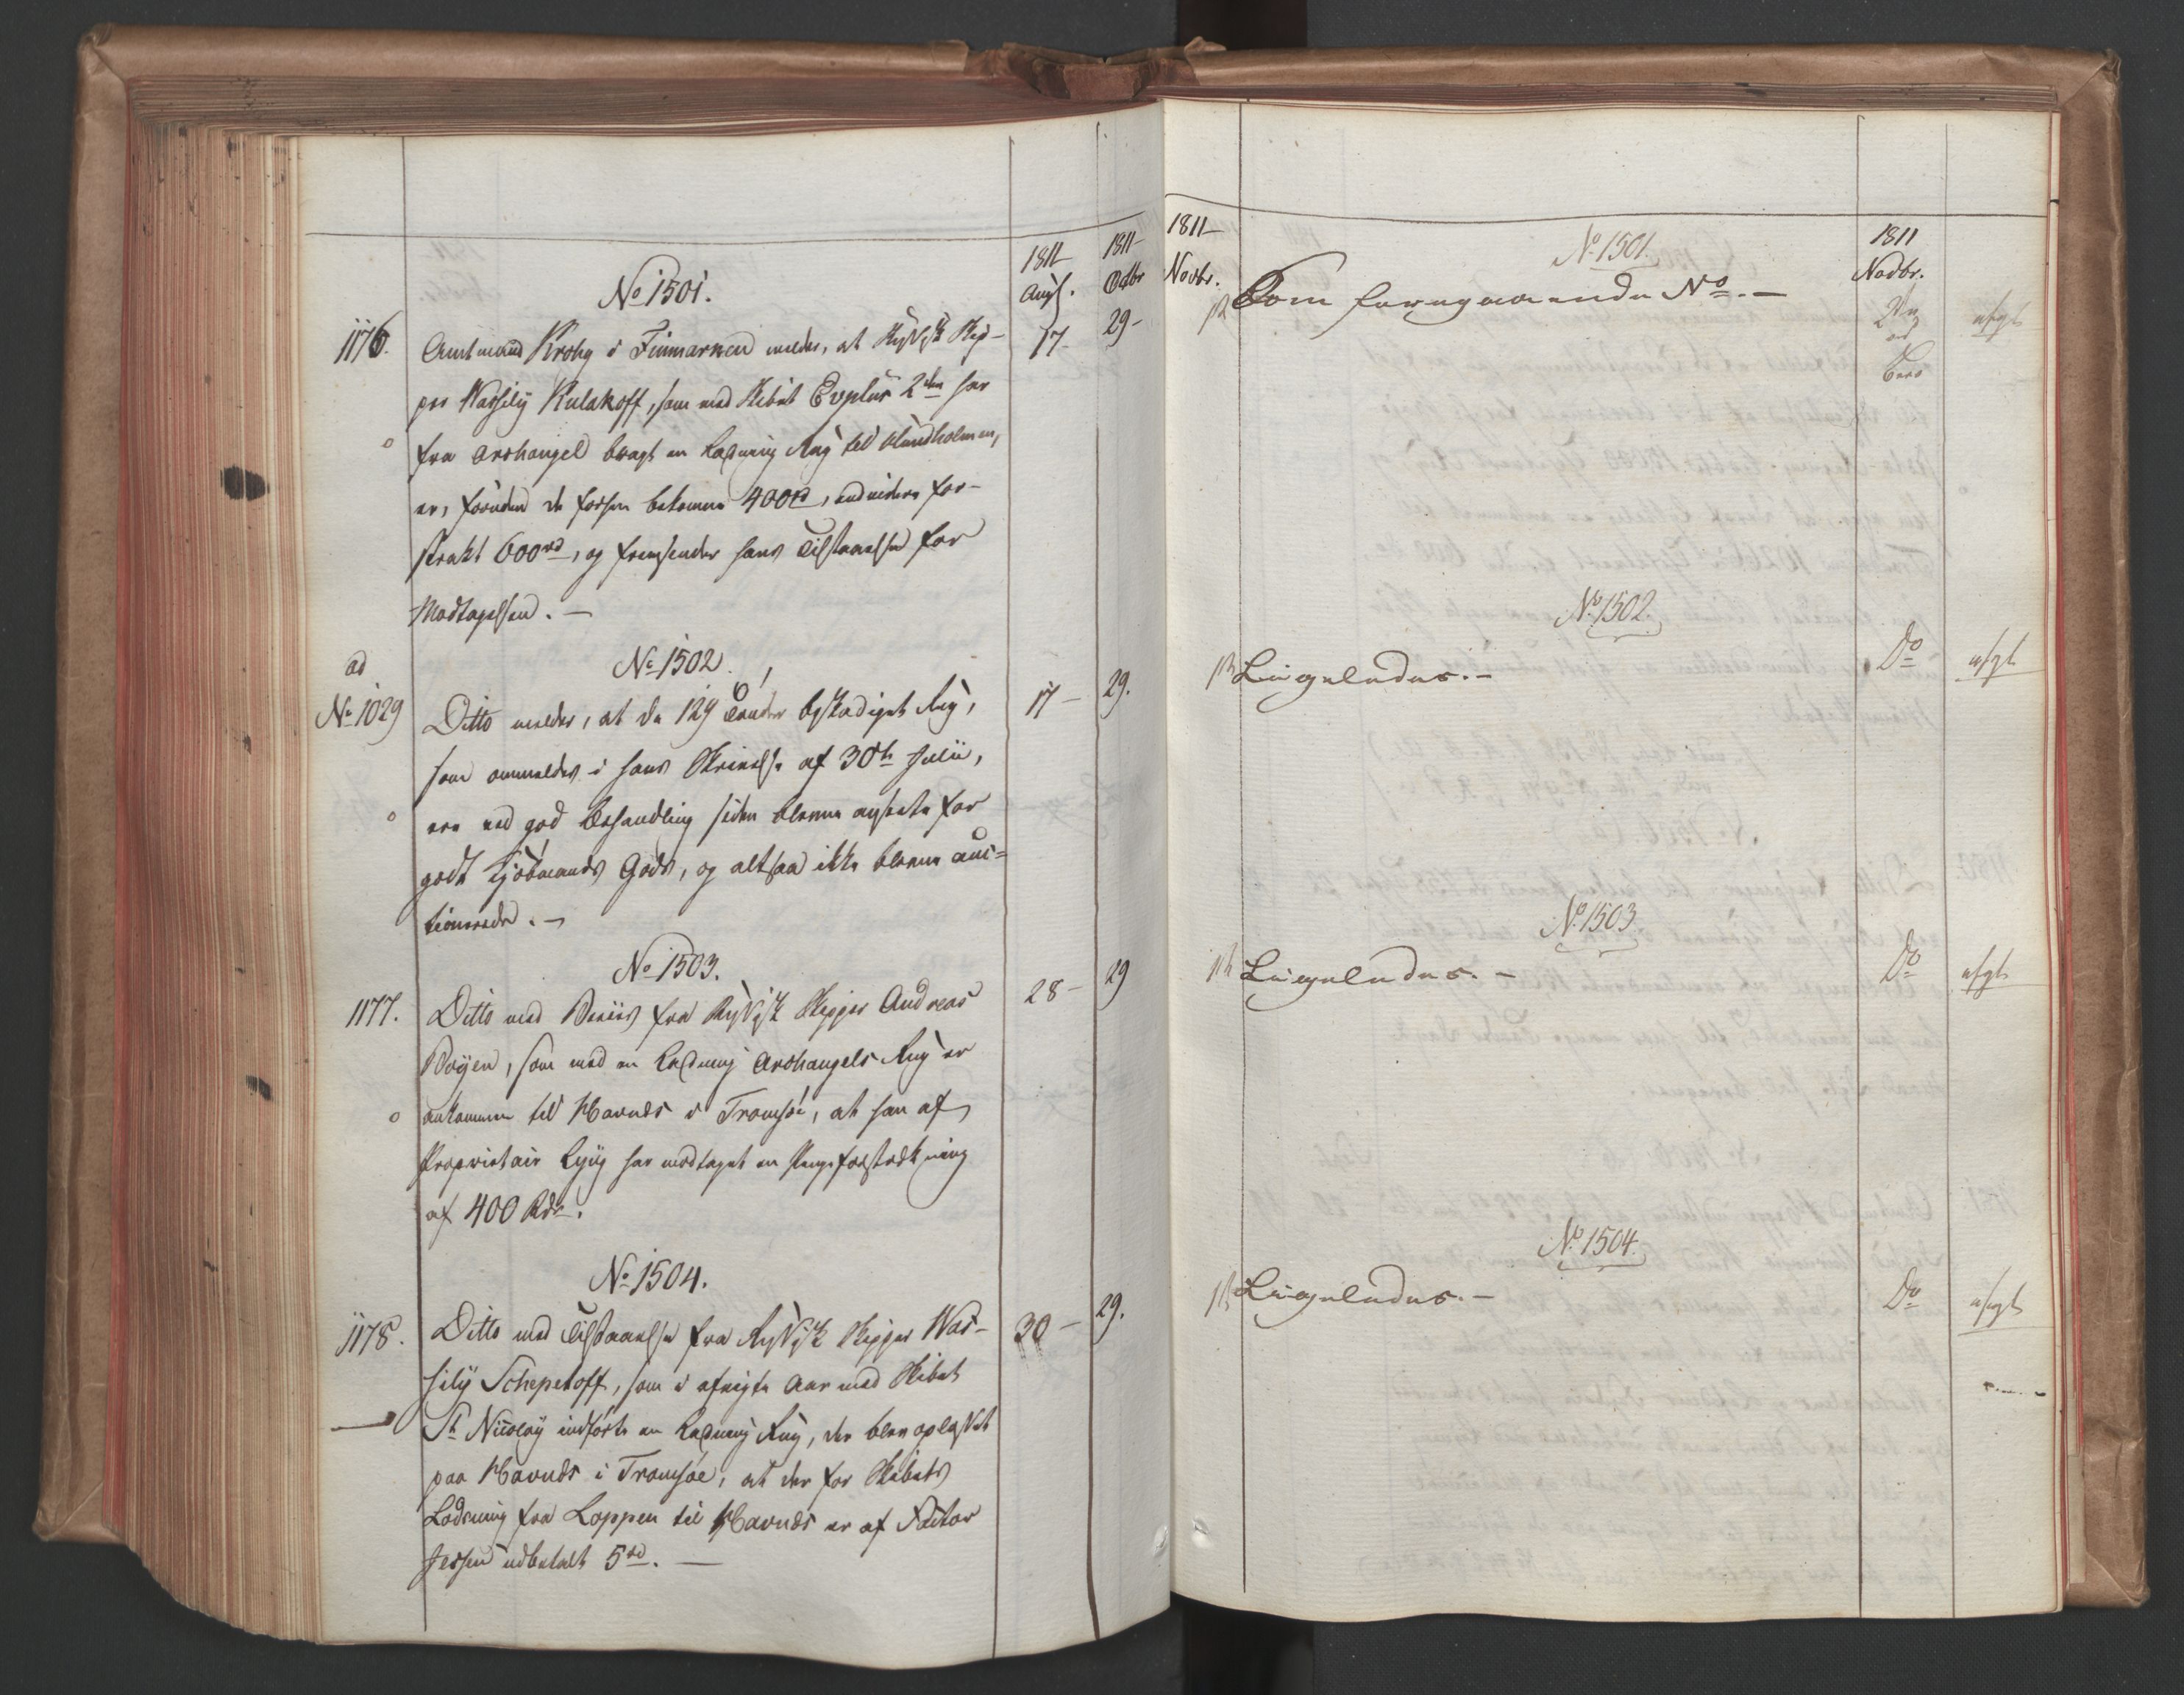 1811 1811
Augs. Octbr
No 1501.
1176. Amtmand Krohg i Finmarken melder, at Russisk Skip- 17- 29-
per Wassily Kulakoff, som med Skibet Evplus 2den har
fra Archangel bragt en Ladning Rug til Mundholmen,
er, foruden de forhen bekomne 400rd, endvidere for-
strakt 600rd, og fremsender hans Tilstaaelse for
Modtagelsen. —
ad
No 1029
No 1502.
Ditto melder, at de 129 Tønder beskadiget Rug, 17- 29.
som ommeldes i hans Skrivelse af 30te Julii,
ere ved god Behandling siden blevne ansete for
godt Kjöbmands Gods, og altsaa ikke blevne auc-
tionerede. —
No 1503.
1177. Ditto med Beviis fra Russisk Skipper Andreas 28- 29
Boyen, som med en Ladning Archangels Rug er
ankommen til Havnes i Tromsöe, at han af
Proprietair Lyng har modtaget en Pengeforstrækning
af 400 Rdr.
No 1504.
1178. Ditto med Tilstaaelse fra Russisk Skipper Was- 30- 29.
sily Schepetoff, som i afvigte Aar med Skibet
St Nicolay indförte en Ladning Rug, der blev oplosset
paa Havnes i Tromsöe, at der for Skibets
Lodsning fra Loppen til Havnes er af Factor
Jessen udbetalt 5rd. —
1811 1811
Novbr. Novbr.
No 1501.
12 Som foregaaende No. — afgt
No 1502.
13 Ligeledes. — Do afgt
No 1503
14 Ligeledes. — Do afgt
No 1504.
15 Ligeledes. — Do afgt